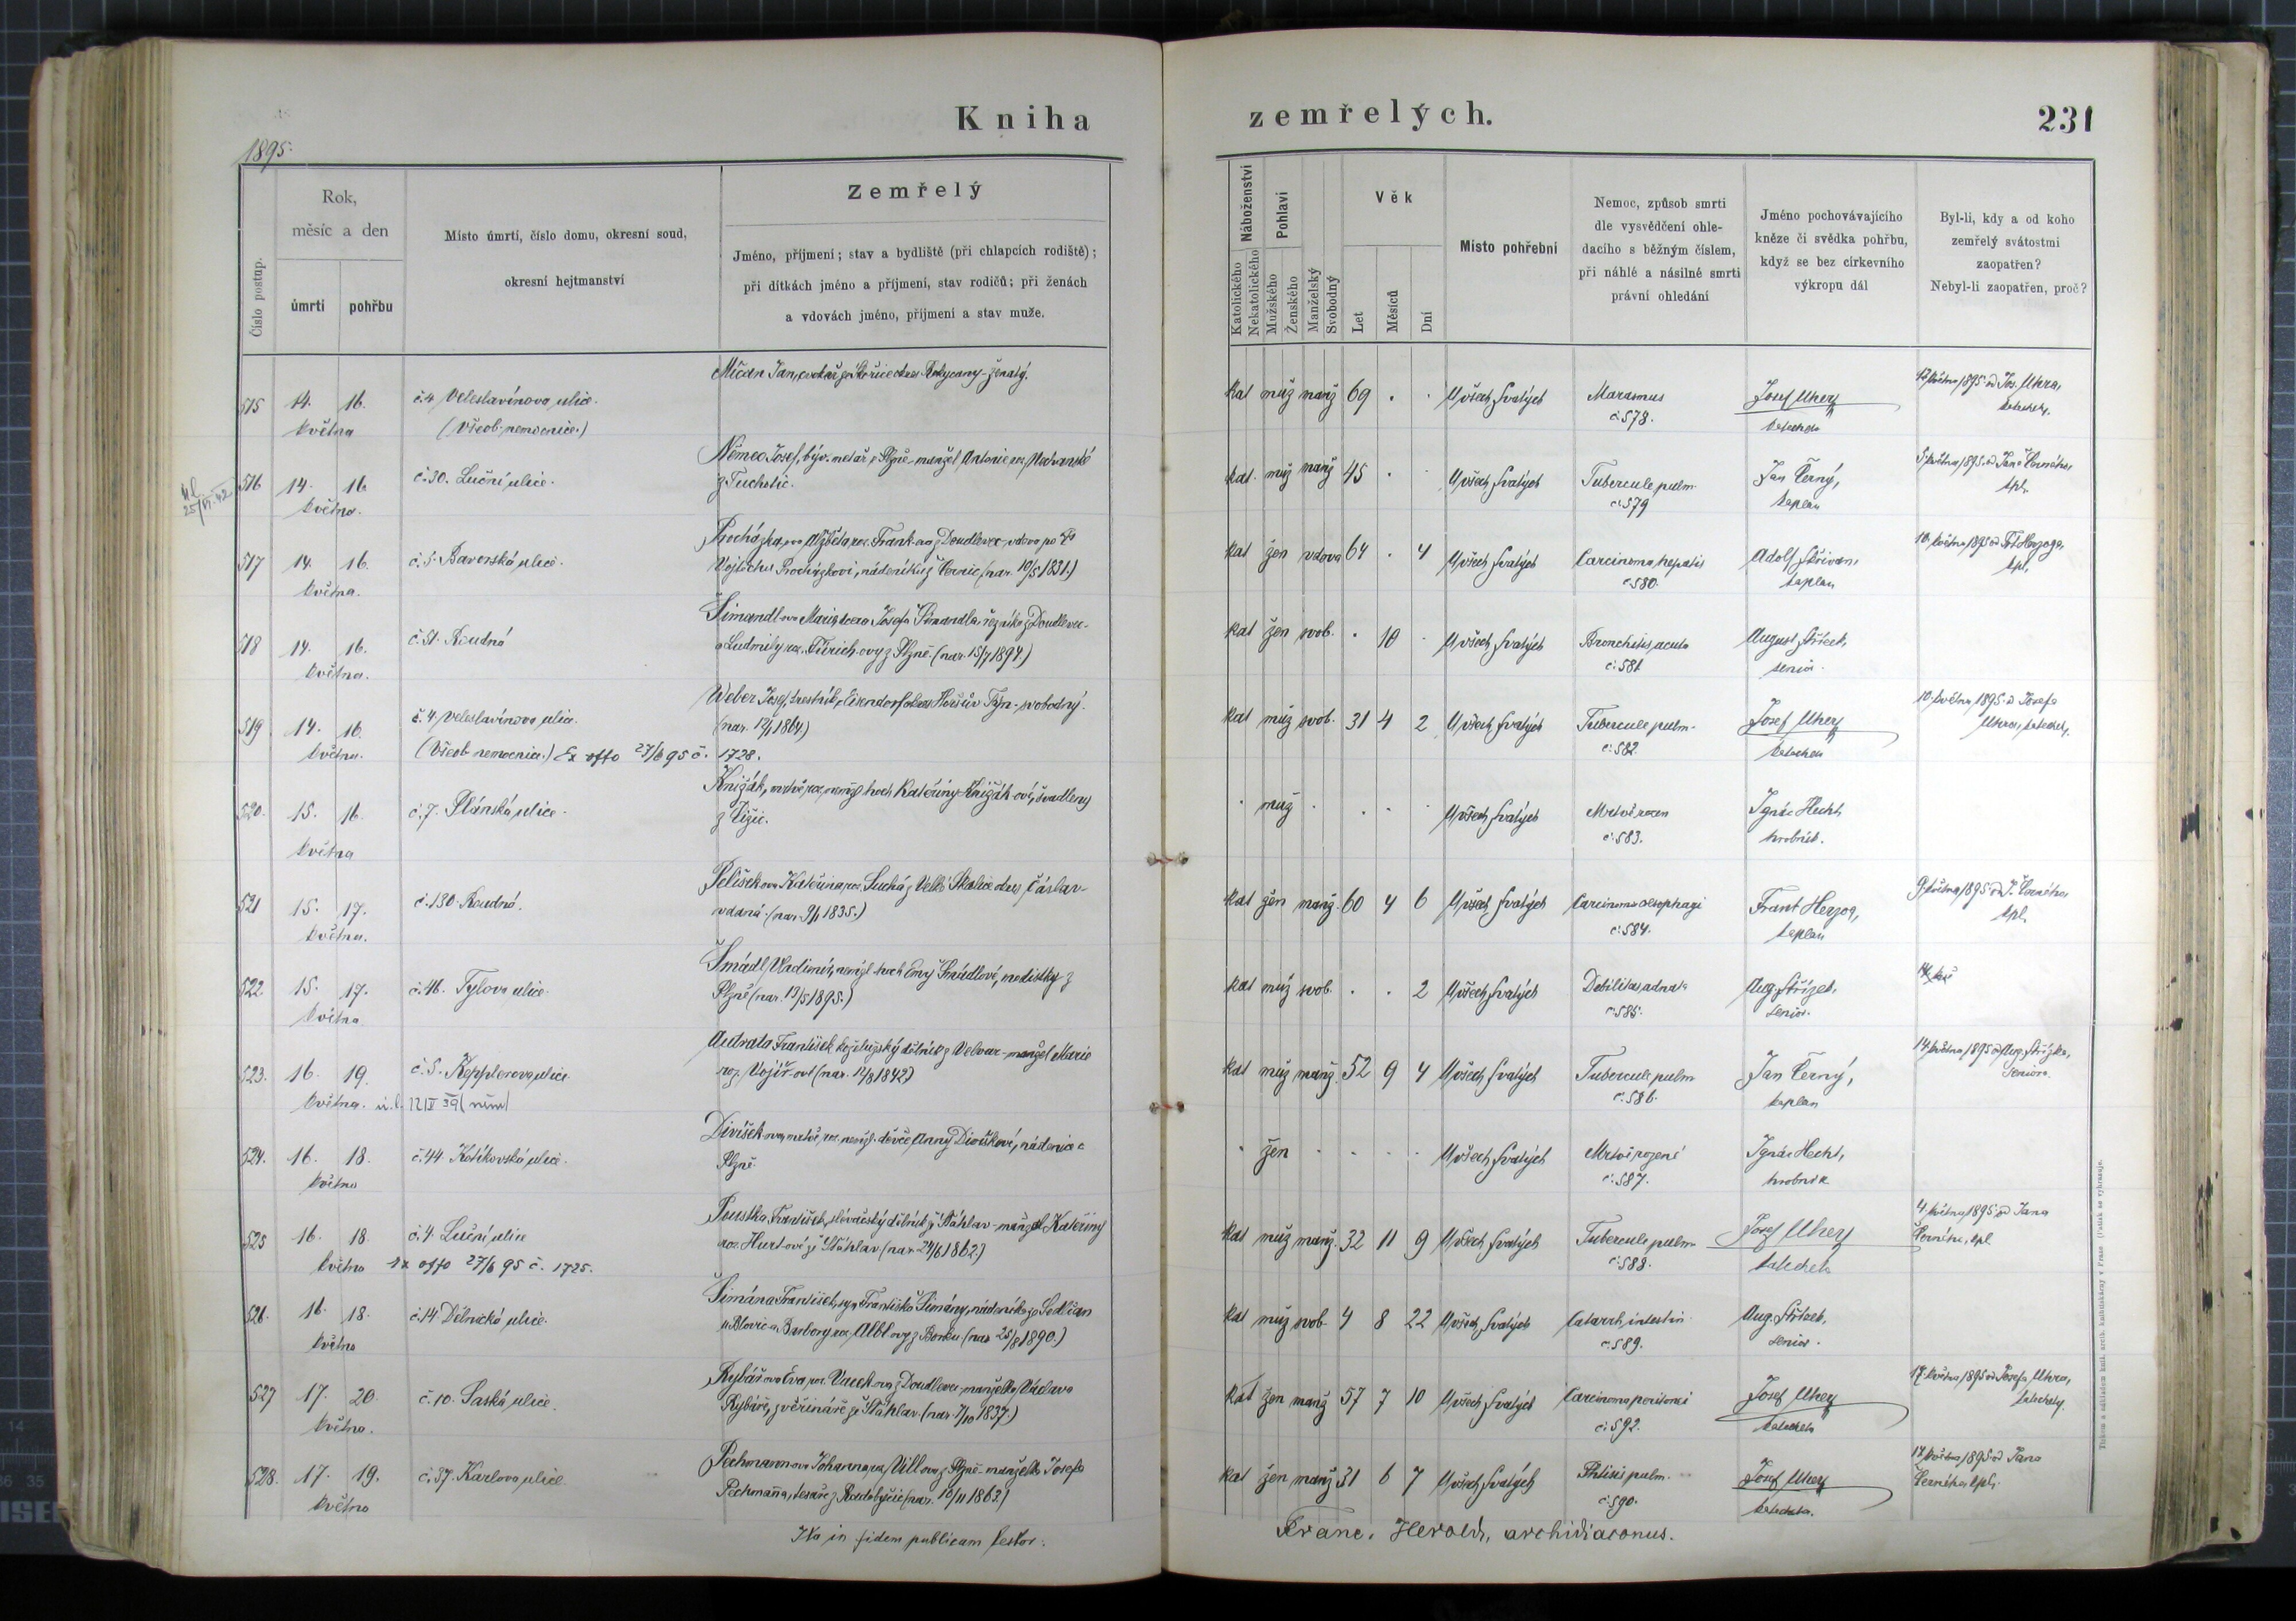 Kniha zemřelých. 231
1895.
Číslo postup.
Rok,
měsíc a den
úmrtí pohřbu
Místo úmrtí, číslo domu, okresní soud,
okresní hejtmanství
Zemřelý
Jméno, příjmení; stav a bydliště (při chlapcích rodiště);
při dítkách jméno a příjmení, stav rodičů; při ženách
a vdovách jméno, příjmení a stav muže.
Náboženství
Katolického
Nekatolického
Pohlaví
Mužského
Ženského
Manželský
Svobodný
Věk
Let
Měsíců
Dní
Místo pohřební
Nemoc, způsob smrti
dle vysvědčení ohle-
dacího s běžným číslem,
při náhlé a násilné smrti
právní ohledání
Jméno pochovávajícího
kněze či svědka pohřbu,
když se bez církevního
výkropu dál
Byl-li, kdy a od koho
zemřelý svátostmi
zaopatřen?
Nebyl-li zaopatřen, proč?
Mičan Jan, ženatý.
515 14. 16. č. 4 Veleslavínova ulice. kat muž manž 69 . . U všech Svatých Marasmus Josef Uherz
května (všeob. nemocnice.) č. 578. katecheta
Němec Josef, z Plzně - manžel Antonie roz.
516 14. 16. č. 30. Luční ulice. z Tuchotic. kat. muž manž 45 . . U všech Svatých Tubercule pulm. Jan Černý, 5. května 1895. od Jana Černého,
května. č. 579 kaplan kpl.
Procházkova Alžběta roz. Franková z Doudlevec - vdova po
517 14. 16. č. 5. Bavorská ulice. Vojtěchu Procházkovi, nádeníku z Černic (nar. 10/5 1831.) kat žen vdova 64 . 4 U všech Svatých Carcinoma hepatis Adolf Skřivan,
května. č. 580. kaplan kpl.
Šimandlova Marie, dcera Josefa Šimandla, řezníka z Doudlevec -
518 14. 16. č. 51. Roudná a Ludmily roz. z Plzně. (nar. 15/7 1894.) kat žen svob. . 10 . U všech Svatých Bronchitis acuta August Střízek,
května. č. 581. senior.
Weber Josef, z Eisendorf okres Horšův Týn - svobodný.
519 14. 16. č. 4 Veleslavínova ulice. (nar. 12/1 1864.) kat muž svob. 31 4 2 U všech Svatých Tubercule pulm. Josef Uherz 10. května 1895. od Josefa
května. (Všeob. nemocnice.) Ex offo 27/6 95 č. 1728. č. 582. katecheta Uhra, katechety.
Knižák, mrtvě roz. nemžl. hoch Kateřiny Knižákové, švadleny
520. 15. 16. č. 7. Plánská ulice. . muž . . . . U všech Svatých Mrtvě rozen Ignác Hecht,
května č. 583. hrobník.
Pelíšková Kateřina roz. Suchá z Velké Skalice okres Čáslav -
521 15. 17. č. 130. Roudná. vdaná. (nar. 9/1 1835.) kat žen manž. 60 4 6 U všech Svatých Carcinoma oesophagi Frant Herzog, 9. května 1895. od J. Černého,
května. č. 584. kaplan kpl.
Šmádl Vladimír, nemžl. hoch Emy Šmádlové, modistky z
522 15. 17. č. 46. Tylova ulice. Plzně (nar. 13/5 1895.) kat muž svob. . . 2 U všech Svatých Debilitas adnata Aug. Střízek,
května č. 585. senior.
Autrata František, koželužský dělník z Velvar - manžel Marie
523. 16. 19. č. 5. Kepplerova ulice roz. Vojířové (nar. 12/8 1842) kat muž manž. 52 9 4 U všech Svatých Tubercule pulm. Jan Černý, 14. května 1895 od Aug. Střízka,
května. č. 586. kaplan seniora.
Divíškova, mrtvě roz. nemžl. děvče Anny Divíškové, nádenice z
524. 16. 18. č. 44. Kotíkovská ulice. Plzně. . žen . . . . U všech Svatých Mrtvě rozené Ignác Hecht,
května č. 587. hrobník
Poustka František, slévačský dělník z Šťáhlav - manžel Kateřiny
525 16. 18. č. 4. Luční ulice roz. Hurtové z Šťáhlav (nar. 24/6 1862.) kat muž manž. 32 11 9 U všech Svatých Tubercule pulm. Josef Uherz 4. května 1895 od Jana
května ex offo 27/6 95 č. 1725. č. 588. katecheta Černého, kpl
Šimána František, syn Františka Šimány, nádeníka ze Sedlčan
526. 16. 18. č. 14. Dělnická ulice. u Blovic a Barbory roz. Alblovy z Borku (nar. 25/8 1890.) kat muž svob. 4 8 22 U všech Svatých Catarrh. intestin. Aug. Střízek,
května č. 589. senior.
Rybářova Eva roz. Vackova z Doudlevec manželka Václava
527 17. 20. č. 10. Saská ulice. Rybáře, zvěrináře ze Šťáhlav (nar. 7/10 1837.) kat žen manž 57 7 10 U všech Svatých Carcinoma peritonei Josef Uherz 17. května 1895 od Josefa Uhra,
května. č. 592. katecheta katechety.
Pechmannova Johanna roz. Villova z Plzně - manželka Josefa
528. 17. 19. č. 37. Karlova ulice. Pechmanna, tesaře z Radobyčic (nar. 10/11 1863.) kat žen manž 31 6 7 U všech Svatých Phtisis pulm. Josef Uherz 17. května 1895 od Jana
května č. 590. katecheta. Černého kpl.
Ita in fidem publicam testor: Franc. Herold, archidiaconus.